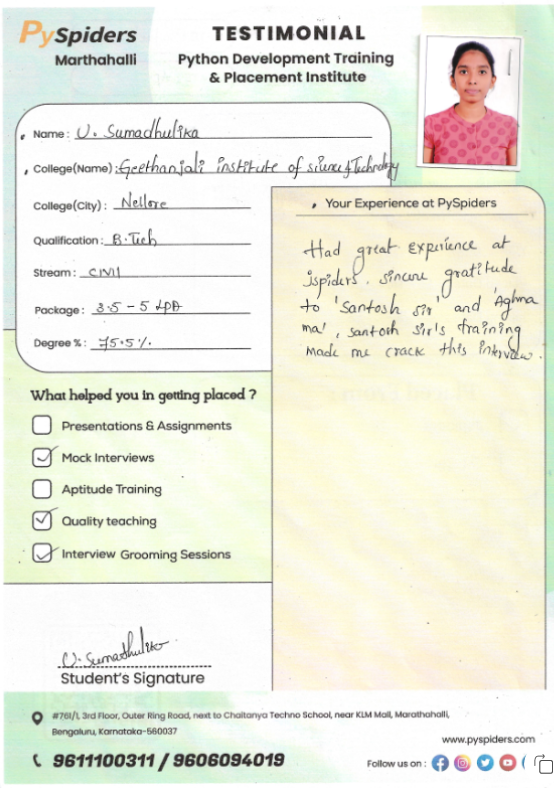 PySpiders
Marthahalli
TESTIMONIAL
Python Development Training
& Placement Institute
Name : U. Sumadhulika
College(Name) : Geethanjali institute of science & Technology
College(City) : Nellore
Qualification : B.Tech
Stream : CIVIL
Package : 3.5 - 5 LPA
Degree % : 75.5%
Your Experience at PySpiders
Had great experience at
jspiders. sincere gratitude
to 'Santosh sir' and 'Aghma
ma', santosh sir's training
made me crack this interview.
What helped you in getting placed ?
Presentations & Assignments
Mock Interviews
Aptitude Training
Quality teaching
Interview Grooming Sessions
U. Sumadhulika
Student's Signature
#761/1, 3rd Floor, Outer Ring Road, next to Chaitanya Techno School, near KLM Mall, Marathahalli,
Bengaluru, Karnataka-560037
www.pyspiders.com
9611100311 / 9606094019
Follow us on :